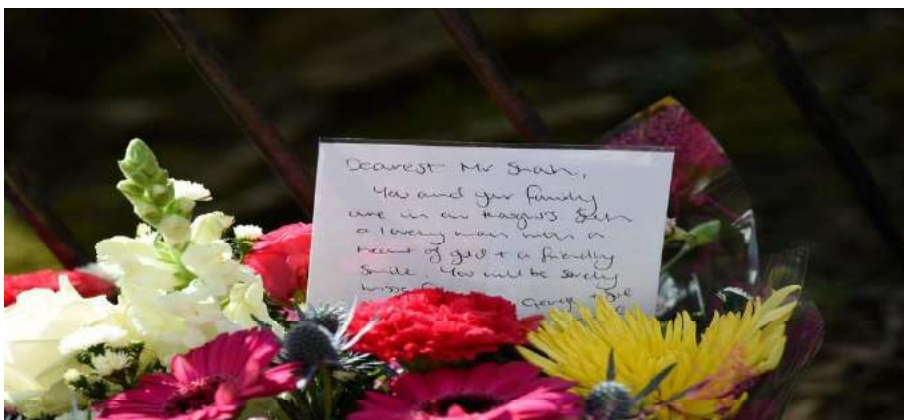 Dearest Mr Shah,
You and your family
are in our thoughts. Such
a lovely man with a
heart of gold + a friendly
smile. You will be sorely
missed